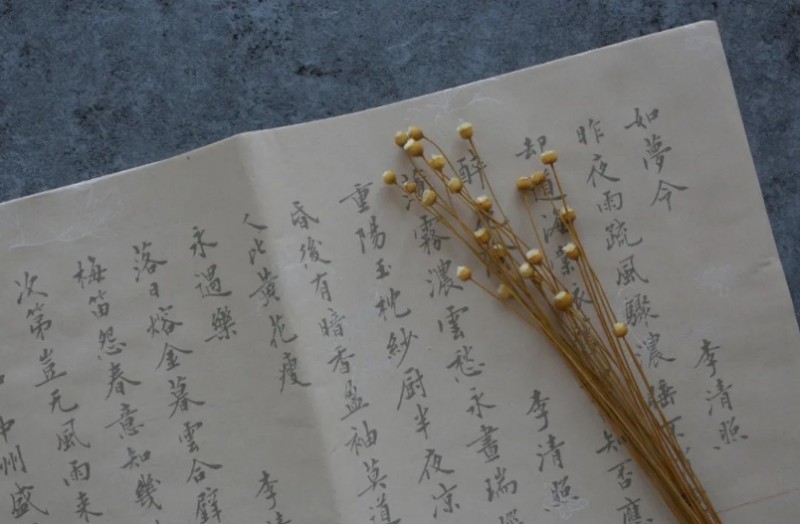 如夢令 李清照
昨夜雨疏風驟濃睡不
却道海棠依 知否應
醉 李清照
薄霧濃雲愁永晝瑞
重陽玉枕紗厨半夜凉
昏後有暗香盈袖莫道
人比黄花瘦
永遇樂 李清
落日熔金暮雲合璧
梅笛怨春意知幾
次第豈无風雨来
中州盛